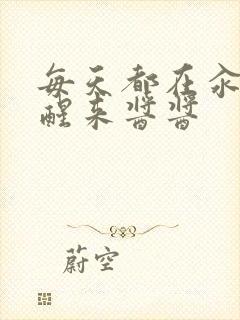 每天都在汆
醒来酱酱
蔚空